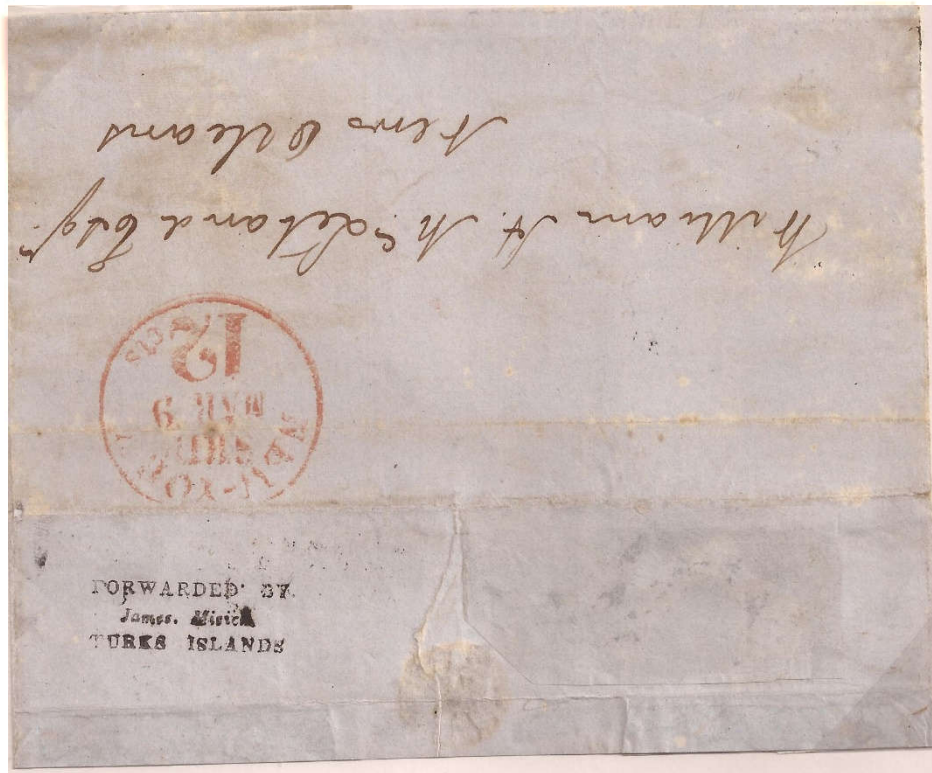 William H. McLeland Esqr.
New Orleans
NEW-YORK
SHIP
MAR 9
12 cts
FORWARDED BY
James. Misick
TURKS ISLANDS